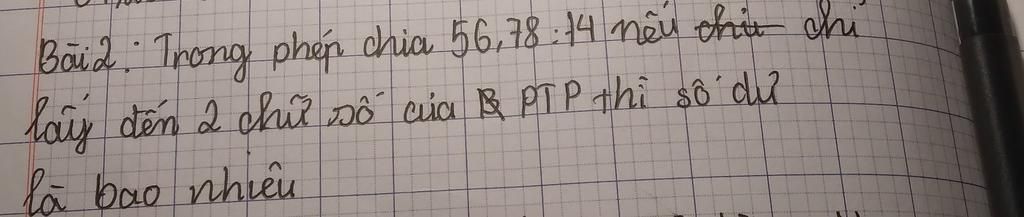 Bài 2: Trong phép chia 56,78 : 14 nếu chỉ
lấy đến 2 chữ số của PTP thì số dư
là bao nhiêu